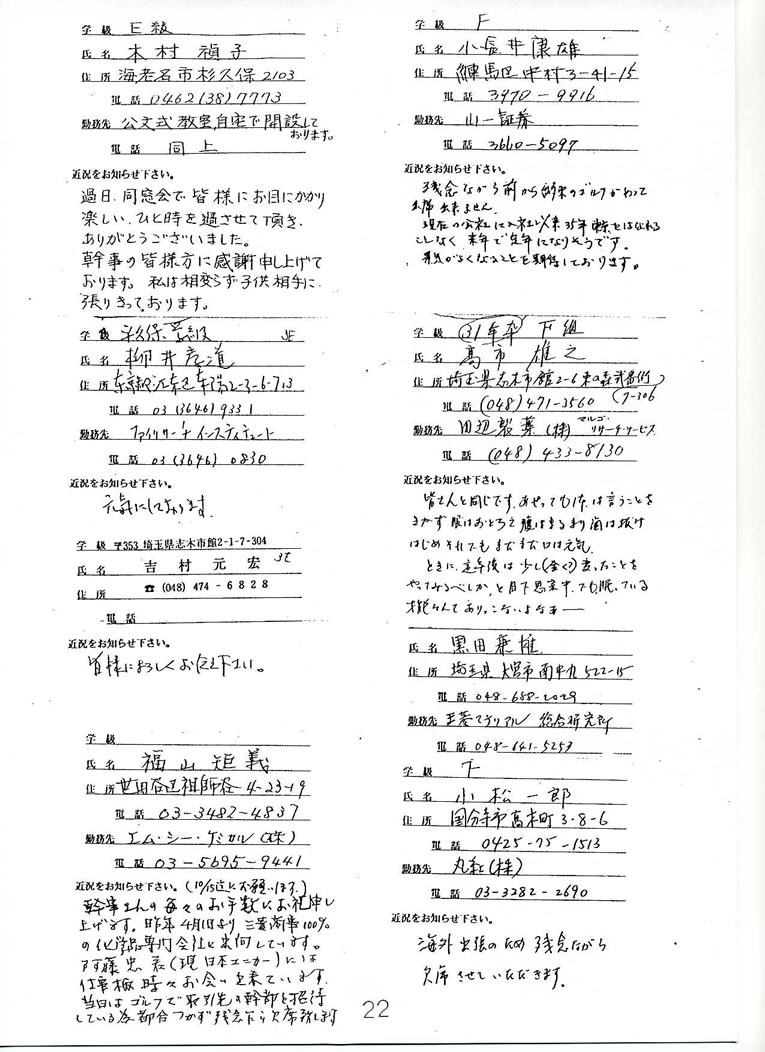 学級 E級
氏名 本村禎子
住所 海老名市杉久保2103
電話 0462(38)7773
勤務先 公文式教室自宅で開設しております。
電話 同上
近況をお知らせ下さい。
過日、同窓会で皆様にお目にかかり
楽しいひと時を過させて頂き、
ありがとうございました。
幹事の皆様方に感謝申し上げて
おります。私は相変らず子供相手に
張りきっております。
学級 3E
氏名 柳井彦道
住所 東京都江東区東陽2-3-6-713
電話 03(3646)9331
勤務先 ファイリサーチインスティテュート
電話 03(3646)0830
近況をお知らせ下さい。
元気にしております。
学級 〒353 埼玉県志木市館2-1-7-304
氏名 吉村元宏 3E
住所 ☎(048)474-6828
電話
近況をお知らせ下さい。
皆様によろしくお伝え下さい。
学級
氏名 福山矩義
住所 世田谷区祖師谷4-23-19
電話 03-3482-4837
勤務先 エム・シー・ケミカル(株)
電話 03-5695-9441
近況をお知らせ下さい。(10/15迄にお願います。)
幹事さんの毎々のお手数にお礼申し
上げます。昨年4月1日より三菱商事100%
の化学品専門会社に出向しています。
阿藤忠 (現日本ユニカー)には
仕事柄時々お会い 来ています。
当日はゴルフで取引先の幹部を招待
している為都合つかず残念乍ら欠席致します
学級 F
氏名 小長井康雄
住所 練馬区中村3-41-15
電話 3970-9916
勤務先 山一証券
電話 3660-5097
近況をお知らせ下さい。
残念ながら前から約束のゴルフがあって
出席出来ません。
現在の会社に入社以来35年 東京をはなれる
ことなく、来年で定年になりそうです。
景気がよくなることを期待しております。
学級 31年卒 F組
氏名 高市雄之
住所 埼玉県志木市館2-6東の森弐番街
(7-306
電話 (048)471-3560
勤務先 田辺製薬(株) マルゴ・リサーチサービス
電話 (048)433-8130
近況をお知らせ下さい。
皆さんと同じです。あせっても体は言うことを
きかず眼はおとろえ腹は出るより歯は抜け
はじめそれでもまだまだ口は元気。
ときに、定年後は少し(全く?)変ったことを
やってみるべしか、と目下思案中。でも眠っている
才能なんてありっこないよなあー
氏名 黒田兼雄
住所 埼玉県大宮市南中丸522-15
電話 048-688-2029
勤務先 三菱マテリアル 総合研究所
電話 048-641-5253
学級 F
氏名 小松一郎
住所 国分寺市高木町3-8-6
電話 0425-75-1513
勤務先 丸紅(株)
電話 03-3282-2690
近況をお知らせ下さい。
海外出張のため残念ながら
欠席させていただきます。
22